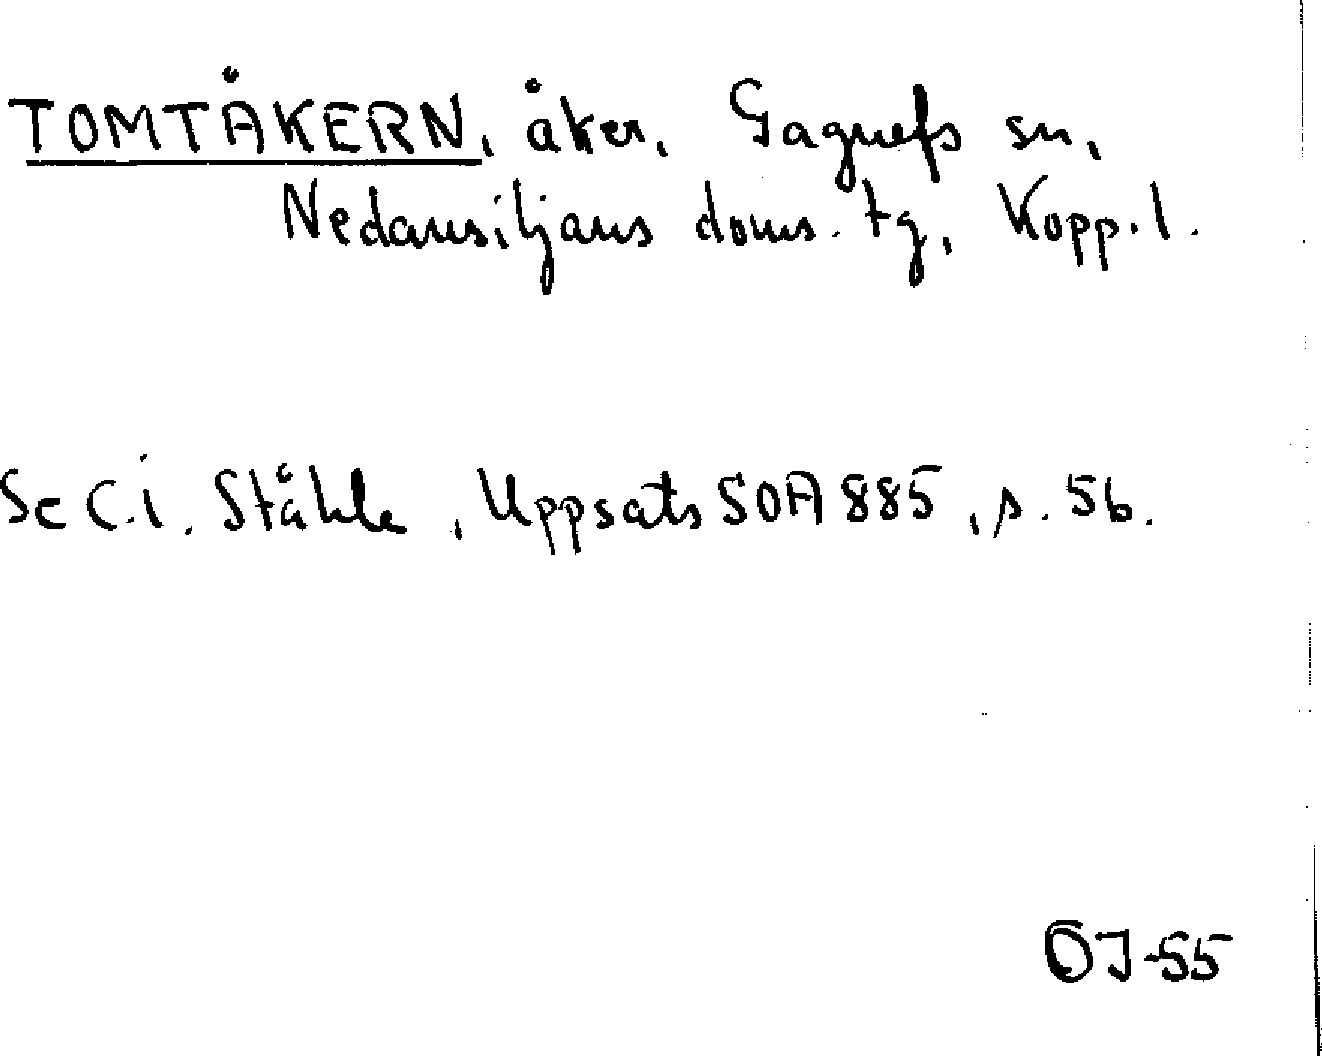 TOMTÅKERN, åker, Gagnefs sn,
Nedansiljans doms. tg, Kopp. l.
Se C.I. Ståhle, Uppsats SOA 885, s. 56.
ÖJ-55